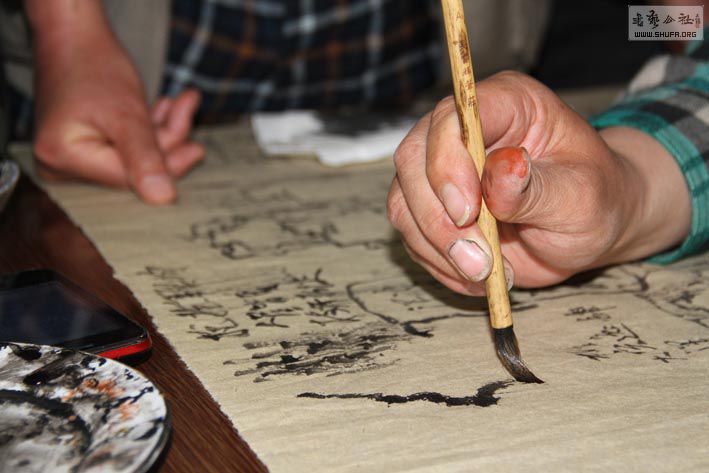 书艺公社
WWW.SHUFA.ORG